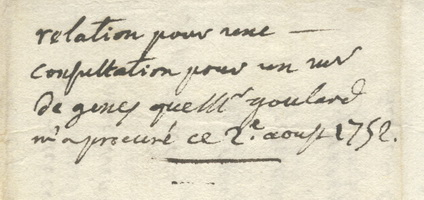 relation pour une —
consultation pour un
de genes que Mr goulard
m'a procuré ce 2.e aoust 1752.